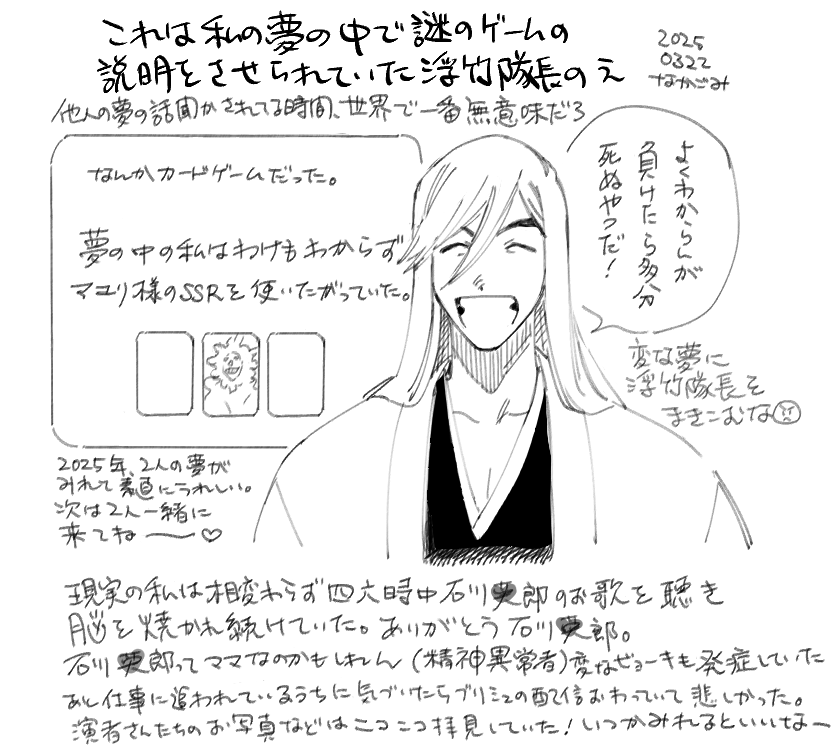 これは私の夢の中で謎のゲームの
説明をさせられていた浮竹隊長のえ
2025
0322
なかごみ
他人の夢の話聞かされてる時間、世界で一番無意味だろ
なんかカードゲームだった。
夢の中の私はわけもわからず
マユリ様のSSRを使いたがっていた。
よくわからんが
負けたら多分
死ぬやつだ!
変な夢に
浮竹隊長を
まきこむな
2025年、2人の夢が
みれて素直にうれしい。
次は2人一緒に
来てね〜♡
現実の私は相変わらず四六時中石川英郎のお歌を聴き
脳を焼かれ続けていた。ありがとう石川英郎。
石川英郎ってママなのかもしれん(精神異常者)変なビョーキも発症していた
あと仕事に追われているうちに気づいたらブリミュの配信おわっていて悲しかった。
演者さんたちのお写真などはニコニコ拝見していた!いつかみれるといいなー